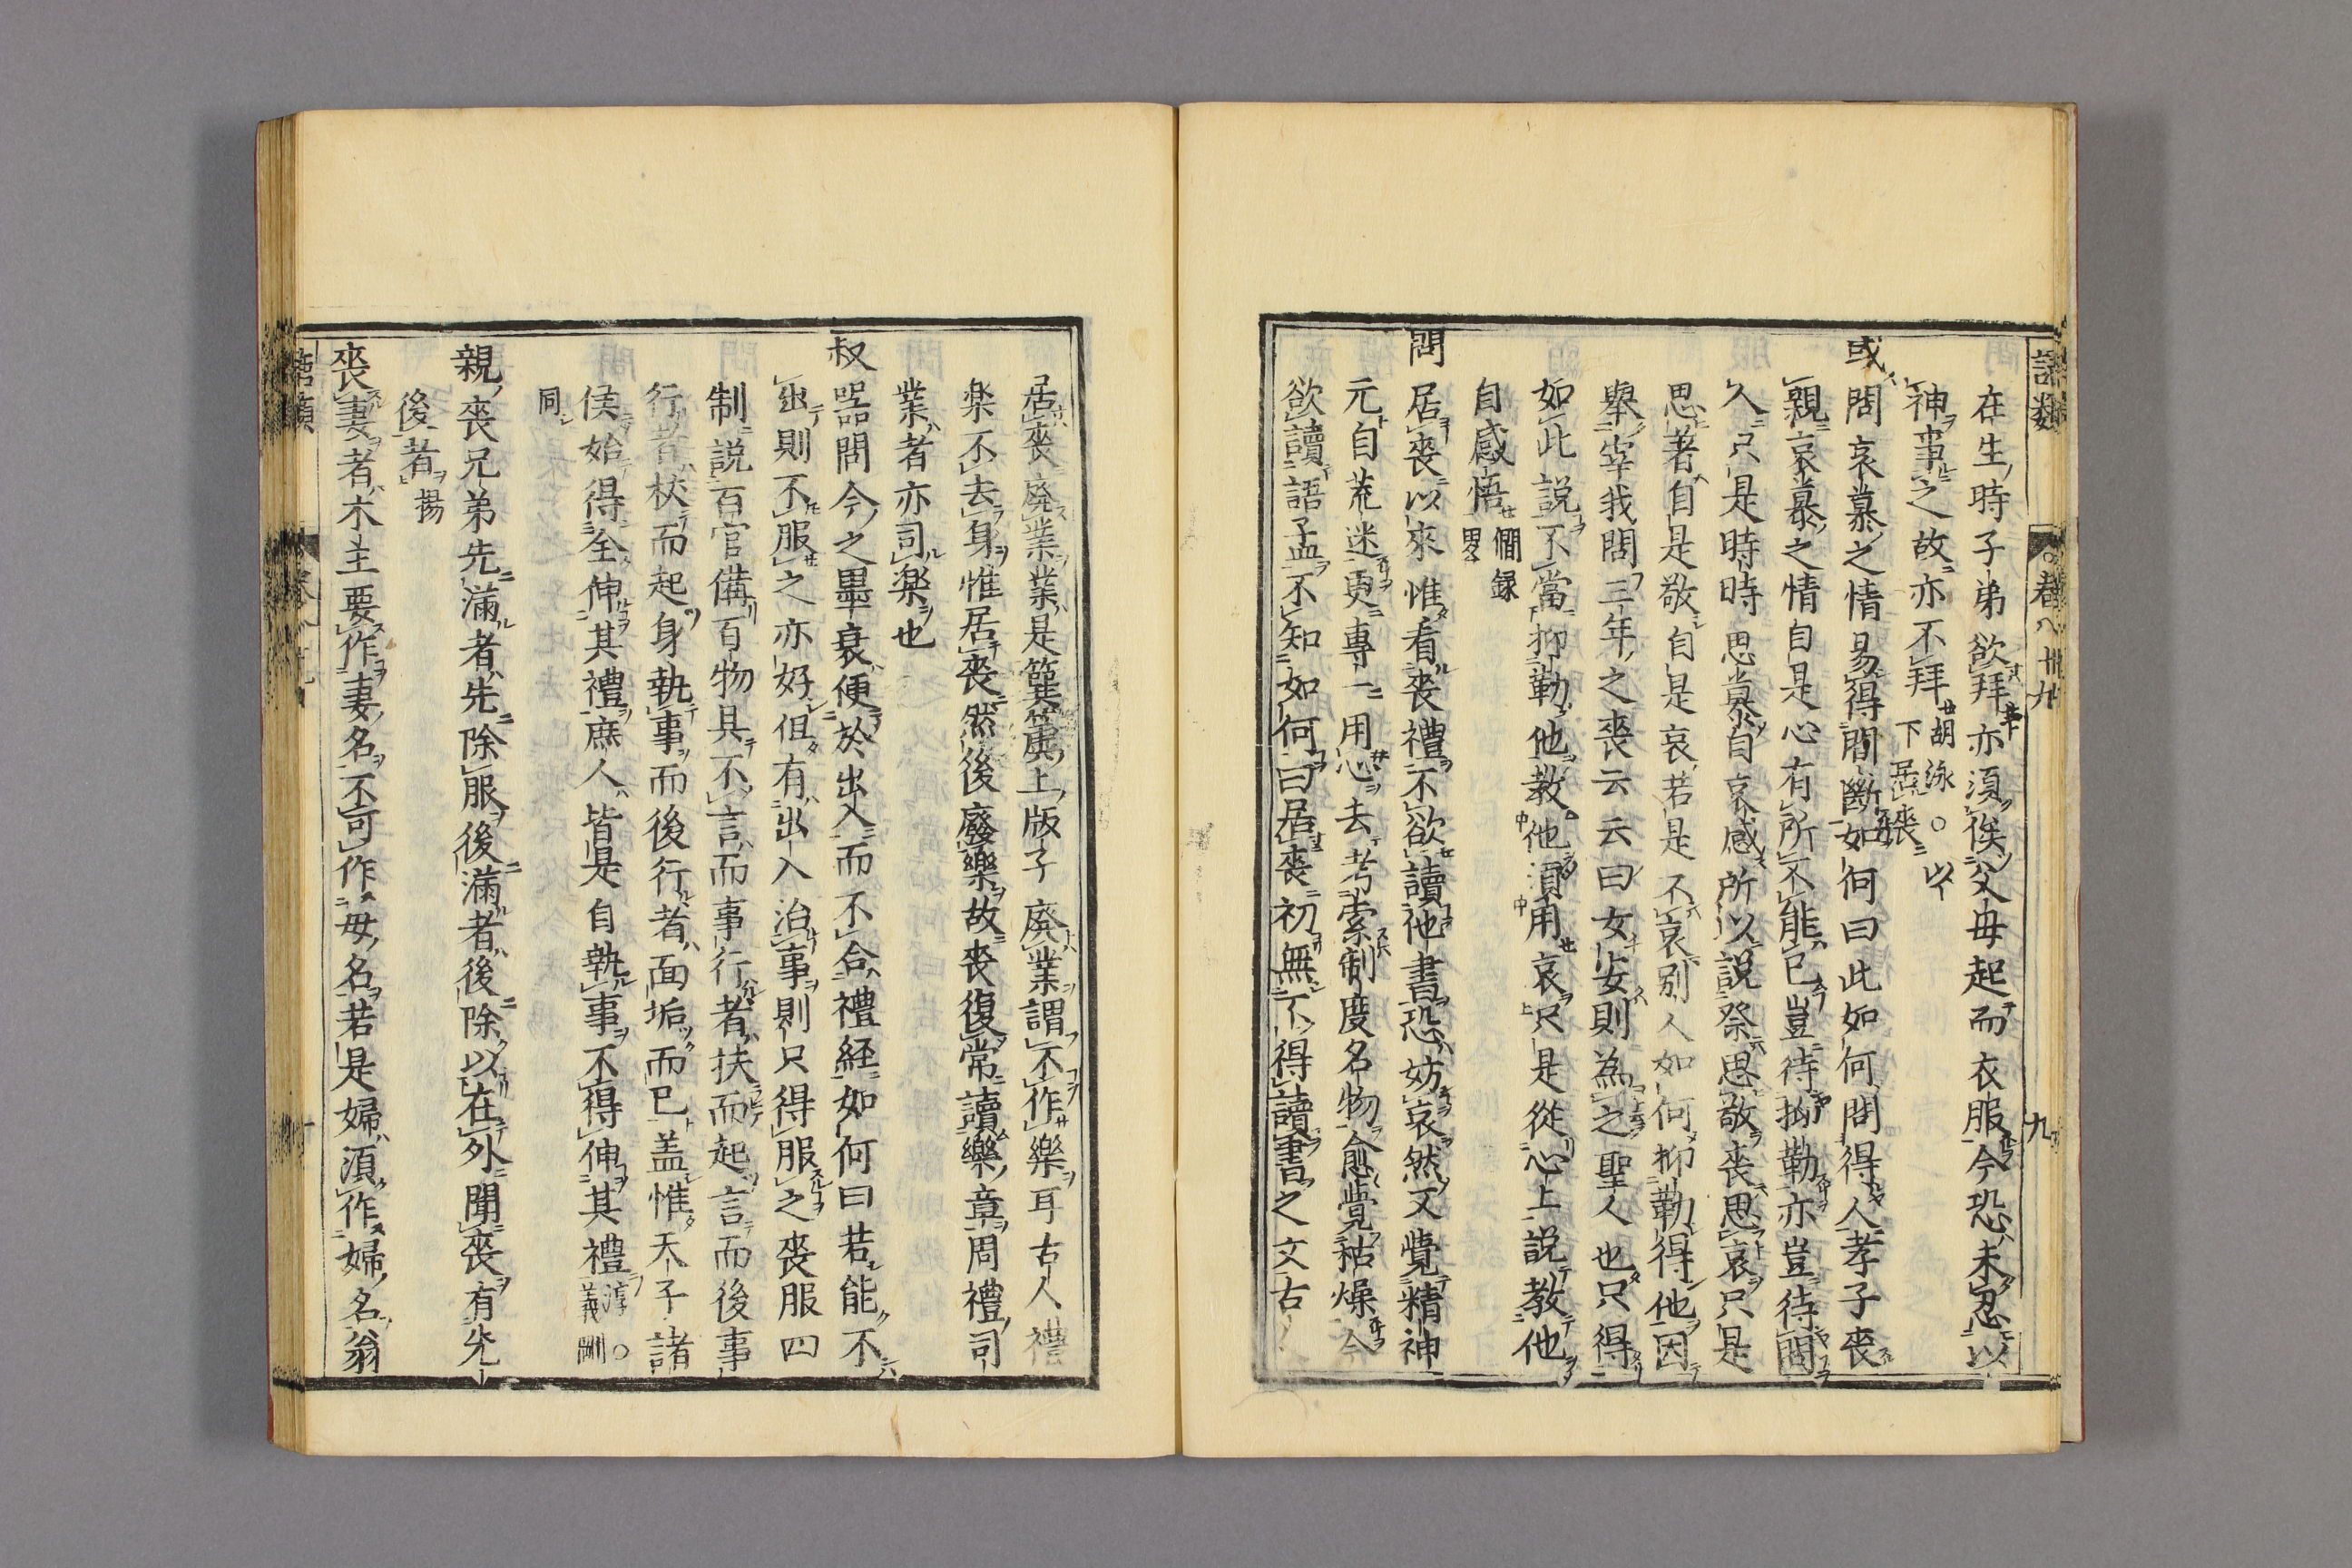 語類 卷八十九 九
在生時子弟欲拜亦須俟父母起而衣服今恐未忍以
神事之故亦不拜 胡泳○以下居喪
或問哀慕之情易得間斷如何曰此如何問得人孝子喪
親哀慕之情自是心有所不能已豈待抑勒亦豈待問
久只是時時思慕自哀感所以說祭思敬喪思哀只是
思著自是敬自是哀若是不哀別人如何抑勒得他因
舉宰我問三年之喪云云曰女安則為之聖人也只得
如此說不當抑勒他教他須用哀只是從心上說教他
自感悟 僩錄畧
問居喪以來惟看喪禮不欲讀他書恐妨哀然又覺精神
元自荒迷更專一用心去考索制度名物愈覺枯燥今
欲讀語孟不知如何曰居喪初無不得讀書之文古人
居喪廢業業是簨簴上版子廢業謂不作樂耳古人禮
樂不去身惟居喪然後廢樂故喪復常讀樂章周禮司
業者亦司樂也
叔器問今之墨衰便於出入而不合禮経如何曰若能不
出則不服之亦好但有出入治事則只得服之喪服四
制說百官備百物具不言而事行者扶而起言而後事
行者杖而起身執事而後行者面垢而已盖惟天子諸
侯始得全伸其禮庶人皆是自執事不得伸其禮 淳○義剛
同
親喪兄弟先滿者先除服後滿者後除以在外聞喪有先
後者 揚
喪妻者木主要作妻名不可作母名若是婦須作婦名翁
語類